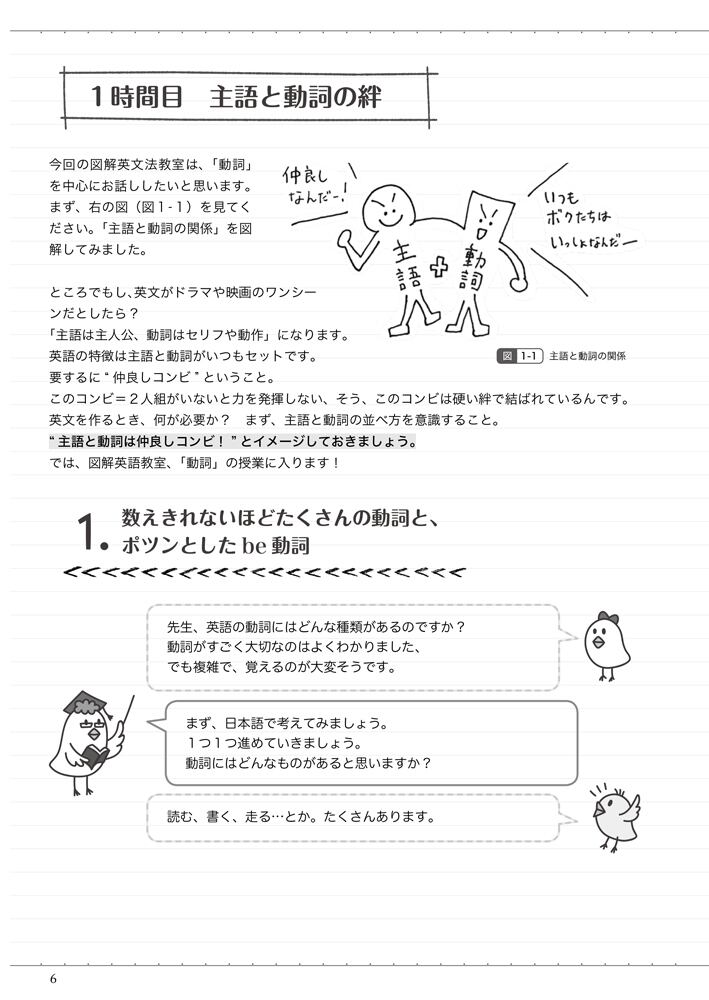 １時間目　主語と動詞の絆
今回の図解英文法教室は、「動詞」
を中心にお話ししたいと思います。
まず、右の図（図１-１）を見てく
ださい。「主語と動詞の関係」を図
解してみました。
仲良し
なんだー！
いつも
ボクたちは
いっしょなんだー
主語
＋
動詞
図 1-1 主語と動詞の関係
ところでもし、英文がドラマや映画のワンシー
ンだとしたら？
「主語は主人公、動詞はセリフや動作」になります。
英語の特徴は主語と動詞がいつもセットです。
要するに“ 仲良しコンビ ”ということ。
このコンビ＝２人組がいないと力を発揮しない、そう、このコンビは硬い絆で結ばれているんです。
英文を作るとき、何が必要か？　まず、主語と動詞の並べ方を意識すること。
“ 主語と動詞は仲良しコンビ！ ”とイメージしておきましょう。
では、図解英語教室、「動詞」の授業に入ります！
1. 数えきれないほどたくさんの動詞と、
ポツンとした be 動詞
先生、英語の動詞にはどんな種類があるのですか？
動詞がすごく大切なのはよくわかりました、
でも複雑で、覚えるのが大変そうです。
まず、日本語で考えてみましょう。
１つ１つ進めていきましょう。
動詞にはどんなものがあると思いますか？
読む、書く、走る…とか。たくさんあります。
6